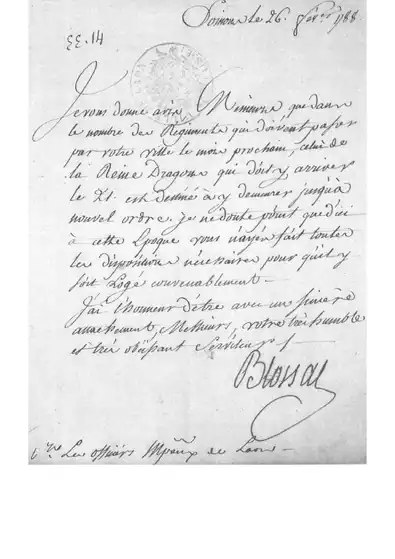 le 26. 1788.
EE. 14
Je vous donne avis Messieurs, que dans
le nombre des Regiments qui doivent passer
par votre ville le mois prochain, celui de
la Reine Dragons qui doit y arriver
le 21. est destiné à y demeurer jusqu'à
nouvel ordre. Je ne doute point que d'ici
à cette Epoque vous n'ayés fait toutes
les dispositions nécessaires pour qu'il y
soit Logé convenablement.
J'ai l'honneur d'être avec un sincère
attachement, Messieurs, votre très humble
et très obéissant Serviteur /.
Blossac
Les officiers Mpaux de Laon